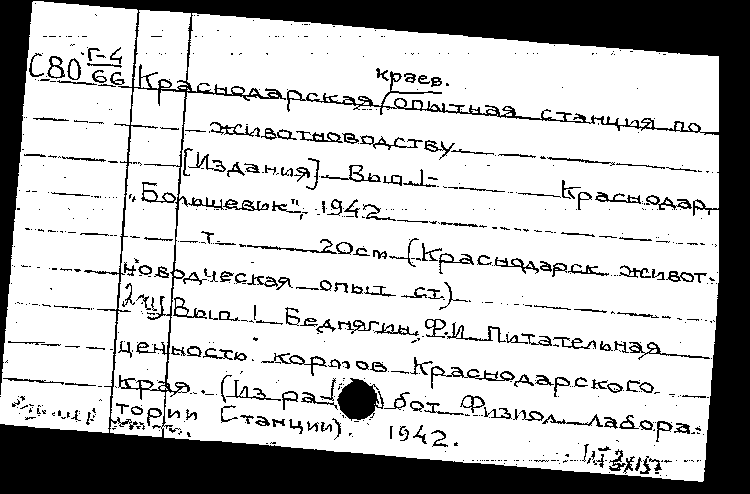 краев.
С80 Г-4/66 Краснодарская опытная станция по
животноводству
[Издания] Вып. 1-
Краснодар,
"Большевик", 1942
т 20см (Краснодарск живот-
новодческая опыт ст.)
Вып. 1 Беднягин, Ф.И. Питательная
ценность кормов Краснодарского
края. (Из работ Физиол. лабора-
тории Станции). 1942.